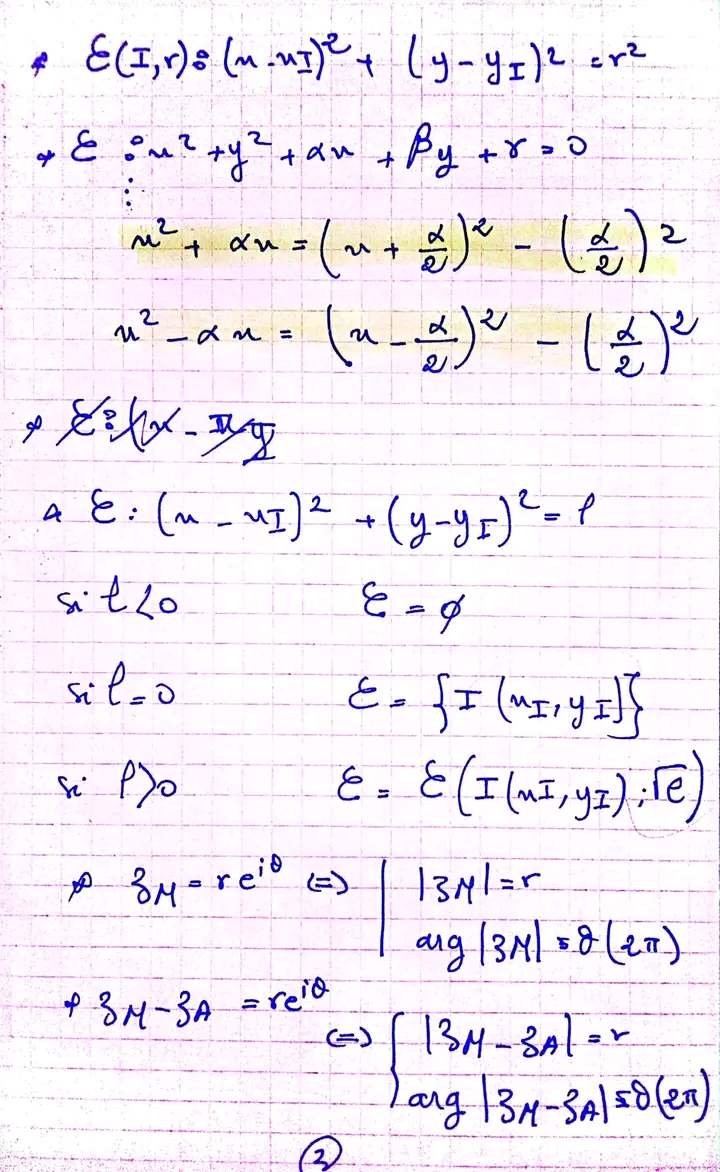 * ℰ(I,r): (x - xI)² + (y - yI)² = r²
* ℰ : x² + y² + αx + βy + γ = 0
⋮
x² + αx = (x + α/2)² - (α/2)²
x² - αx = (x - α/2)² - (α/2)²
* ℰ: (x - xI)² + (y - yI)² = ℓ
si ℓ<0 ℰ = ∅
si ℓ=0 ℰ = {I (xI, yI)}
si ℓ>0 ℰ = ℰ(I(xI, yI); √ℓ)
* zM = re^{iθ} (=) | |zM| = r
arg |zM| ≡ θ (2π)
* zM - zA = re^{iθ}
(=) { |zM - zA| = r
arg |zM - zA| ≡ θ (2π)
2